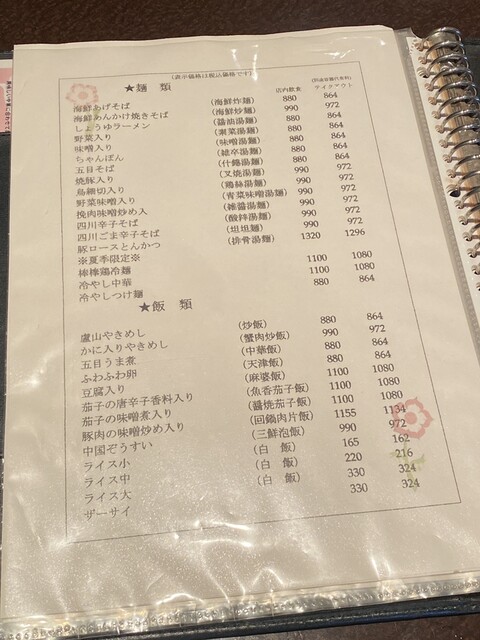 (表示価格は税込価格です)
★麺 類
店内飲食
(別途容器代有料)
テイクアウト
海鮮あげそば (海鮮炸麺) 880 864
海鮮あんかけ焼きそば (海鮮炒麺) 990 972
しょうゆラーメン (醤油湯麺) 880 864
野菜入り (素菜湯麺) 880 864
味噌入り (味噌湯麺) 880 864
ちゃんぽん (雑卒湯麺) 880 864
五目そば (什錦湯麺) 880 864
焼豚入り (叉焼湯麺) 990 972
鳥細切入り (鶏絲湯麺) 990 972
野菜味噌入り (青菜味噌湯麺) 990 972
挽肉味噌炒め入 (雑醤湯麺) 990 972
四川辛子そば (酸辣湯麺) 990 972
四川ごま辛子そば (坦坦麺) 990 972
豚ロースとんかつ (排骨湯麺) 1320 1296
※夏季限定※
棒棒鶏冷麺 1100 1080
冷やし中華 1100 1080
冷やしつけ麺 880 864
★飯 類
盧山やきめし (炒飯) 880 864
かに入りやきめし (蟹肉炒飯) 990 972
五目うま煮 (中華飯) 880 864
ふわふわ卵 (天津飯) 880 864
豆腐入り (麻婆飯) 1100 1080
茄子の唐辛子香料入り (魚香茄子飯) 1100 1080
茄子の味噌煮入り (醤焼茄子飯) 1100 1080
豚肉の味噌炒め入り (回鍋肉片飯) 1155 1134
中国ぞうすい (三鮮泡飯) 990 972
ライス小 (白 飯) 165 162
ライス中 (白 飯) 220 216
ライス大 (白 飯) 330 324
ザーサイ 330 324